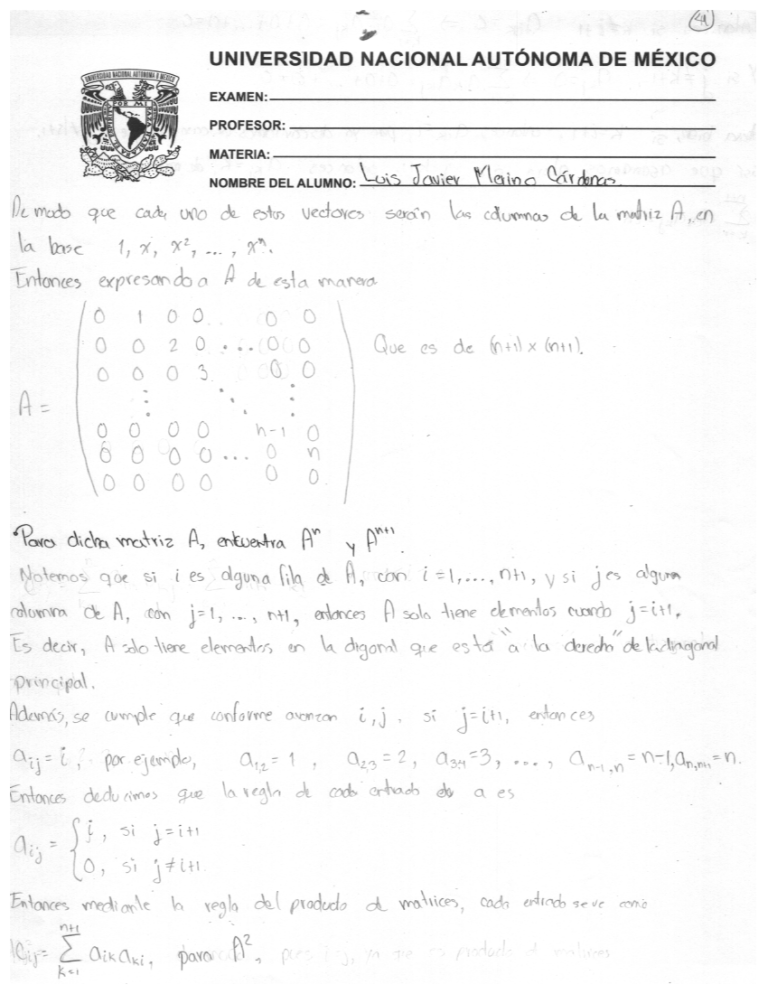 4
UNIVERSIDAD NACIONAL AUTÓNOMA DE MÉXICO
EXAMEN:
PROFESOR:
MATERIA:
NOMBRE DEL ALUMNO: Luis Javier Merino Cárdenas
De modo que cada uno de estos vectores serán las columnas de la matriz A, en
la base 1, x, x², ..., xⁿ.
Entonces expresando a A de esta manera
0 1 0 0 .. 0 0
0 0 2 0 ... 0 0
0 0 0 3 0 0
A = ⋮ ⋱ ⋮
0 0 0 0 n-1 0
0 0 0 0 ... 0 n
0 0 0 0 0 0
Que es de (n+1) x (n+1).
• Para dicha matriz A, encuentra Aⁿ y Aⁿ⁺¹.
Notemos que si i es alguna fila de A, con i=1, ..., n+1, y si j es alguna
columna de A, con j=1, ..., n+1, entonces A solo tiene elementos cuando j=i+1.
Es decir, A solo tiene elementos en la digonal que está "a la derecha" de la diagonal
principal.
Además, se cumple que conforme avanzan i, j, si j=i+1, entonces
aᵢⱼ = i, por ejemplo, a₁,₂ = 1, a₂,₃ = 2, a₃,₄ = 3, ..., aₙ₋₁,ₙ = n-1, aₙ,ₙ₊₁ = n.
Entonces deducimos que la regla de cada entrada de a es
aᵢⱼ = { i, si j=i+1
0, si j≠i+1
Entonces mediante la regla del producto de matrices, cada entrada se ve como
n+1
Σ aᵢₖ aₖᵢ, para A²,
k=1